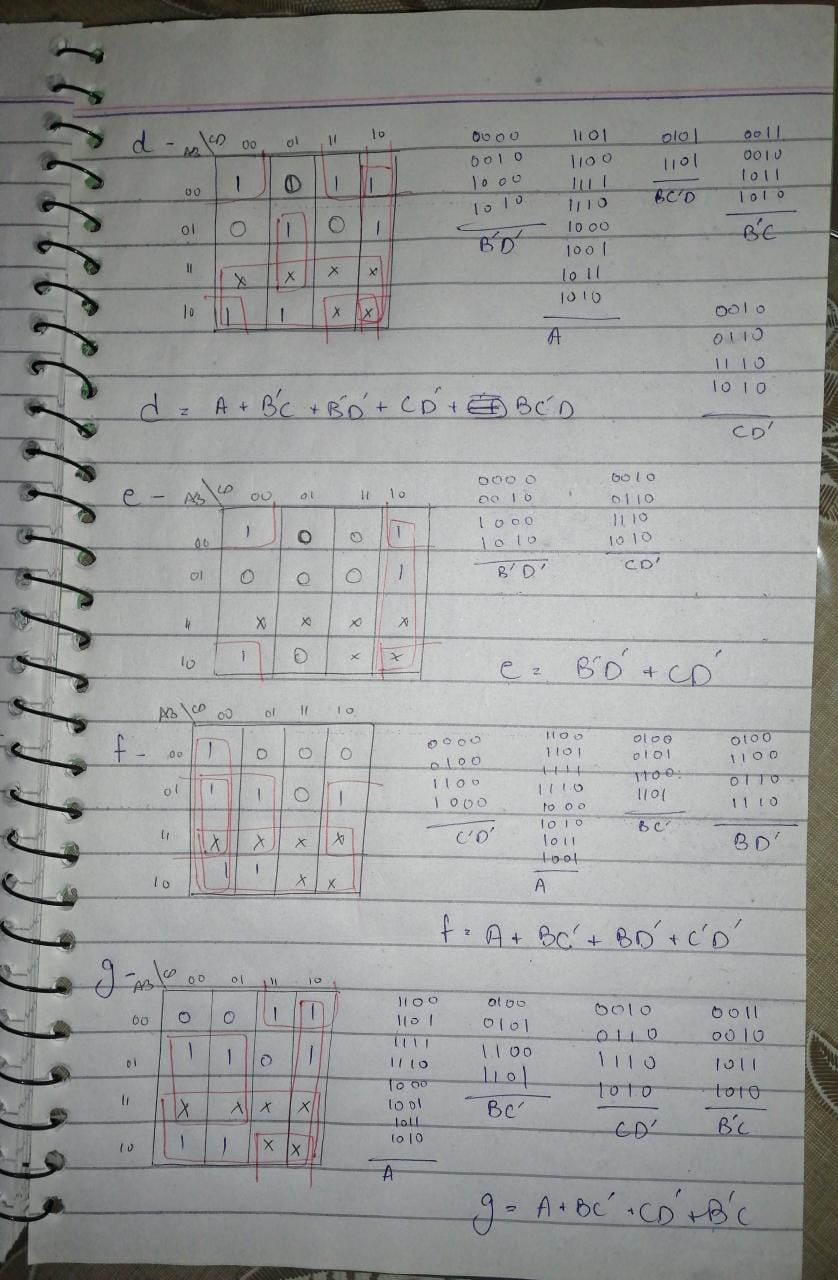 d - AB\CD 00 01 11 10
00 1 0 1 1
01 0 1 0 1
11 x x x x
10 1 1 x x
0000
0010
1000
1010
B'D'
1101
1100
1111
1110
1000
1001
1011
1010
A
0101
1101
BC'D
0011
0010
1011
1010
B'C
0010
0110
1110
1010
CD'
d = A + B'C + B'D' + CD' + BC'D
e - AB\CD 00 01 11 10
00 1 0 0 1
01 0 0 0 1
11 x x x x
10 1 0 x x
0000
0010
1000
1010
B'D'
0010
0110
1110
1010
CD'
e = B'D' + CD'
f - AB\CD 00 01 11 10
00 1 0 0 0
01 1 1 0 1
11 x x x x
10 1 1 x x
0000
0100
1100
1000
C'D'
1100
1101
1111
1110
1000
1010
1011
1001
A
0100
0101
1100
1101
BC'
0100
1100
0110
1110
BD'
f = A + BC' + BD' + C'D'
g - AB\CD 00 01 11 10
00 0 0 1 1
01 1 1 0 1
11 x x x x
10 1 1 x x
1100
1101
1111
1110
1000
1001
1011
1010
A
0100
0101
1100
1101
BC'
0010
0110
1110
1010
CD'
0011
0010
1011
1010
B'C
g = A + BC' + CD' + B'C